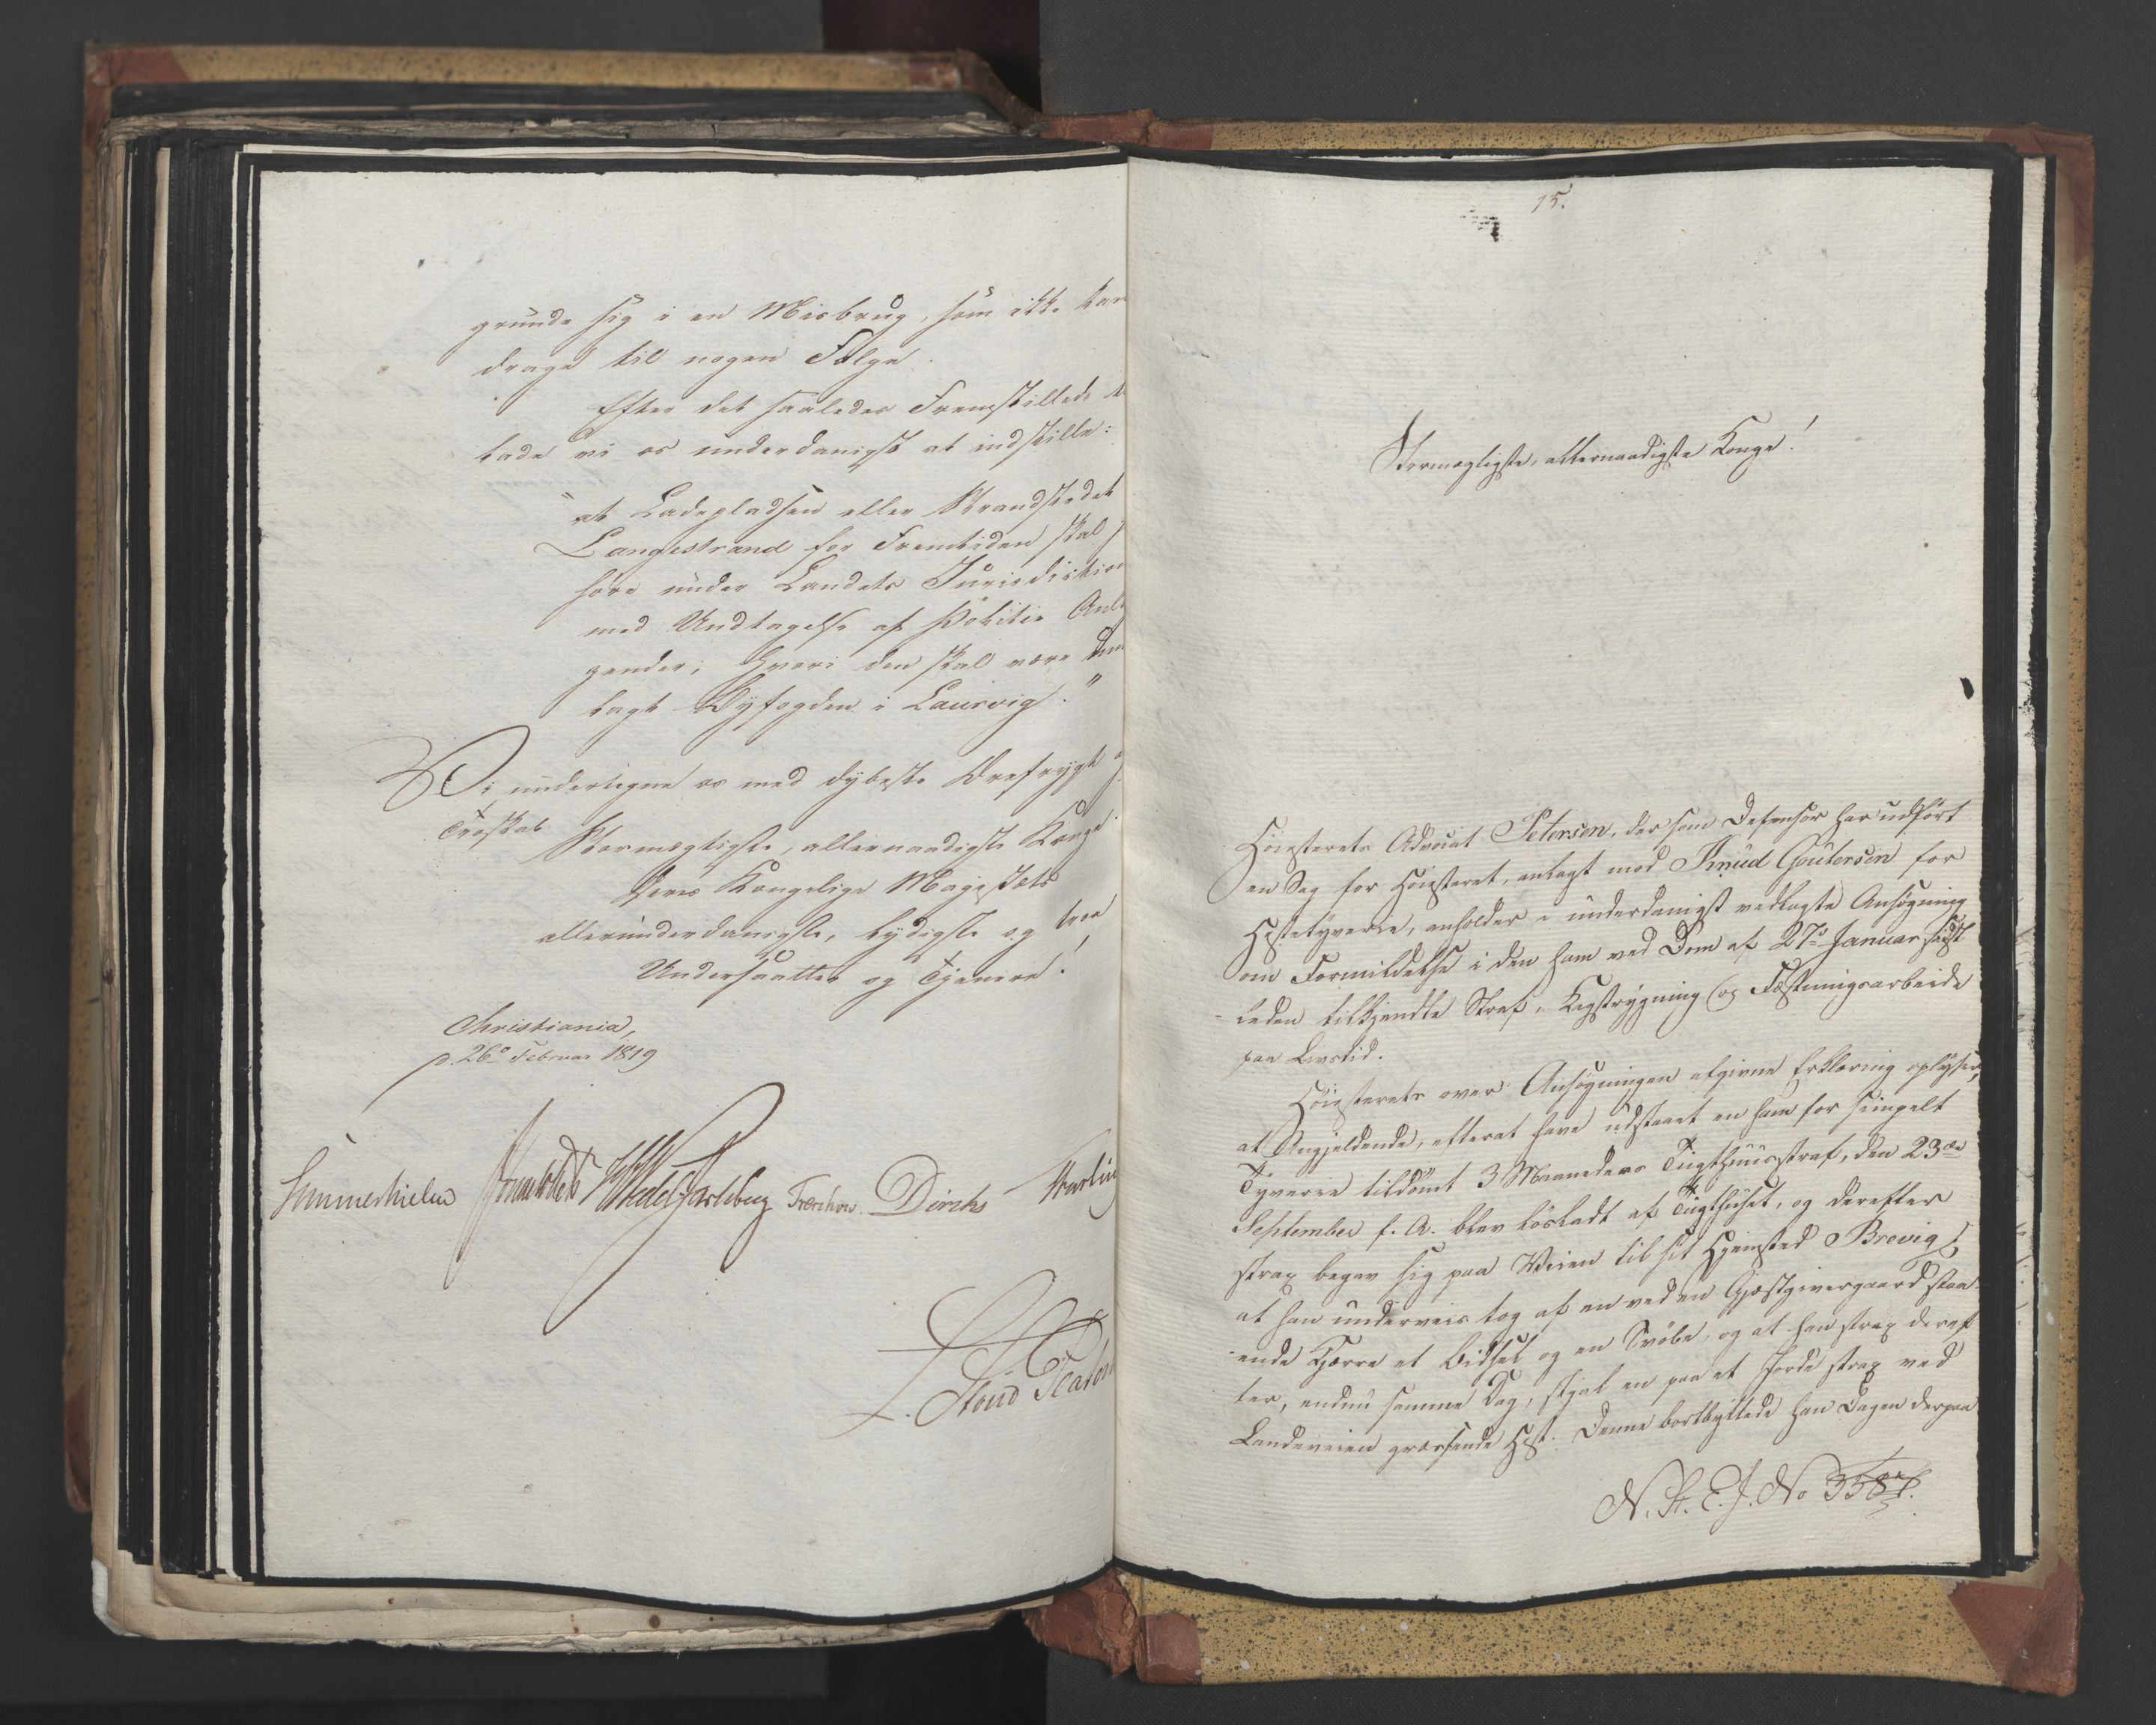 grunde sig i en Misbrug, som ikke kan
drage til nogen Følge.
Efter det saaledes Fremstillede
lade vi os underdanigst at indstille:
"at Ladepladsen eller Strandstedet
Langestrand for Fremtiden skal
høre under Landets Jurisdiction
med Undtagelse af Politie Anlig
gender, hvori den skal være
lagt Byfogden i Laurvig."
Vi undertegne os med dybeste Ærefrygt og
Troskab
Stormægtigste, allernaadigste Konge!
Deres Kongelige Majestæts
allerunderdanigste, lydigste og troe
Undersaatter og Tjenere!
Christiania,
d. 26de Februar 1819
Sommerhielm Wedel Jarlsberg Treschow. Diriks
15.
Stormægtigste, allernaadigste Konge!
Høiesterets Advocat Petersen, der som Defensor har udført
en Sag for Høiesteret, anlagt mod Knud Goutersen for
Hestetyverie, anholder i underdanigst vedlagte Ansøgning
om Formildelse i den ham ved Dom af 27de Januar sidst
leden tilkjendte Straf, Kagstrygning og Fæstningsarbeide
paa Livstid.
Høiesterets over Ansøgningen afgivne Erklæring oplyser,
at Angjeldende, efterat have udstaaet en ham for simpelt
Tyverie tildømt 3 Maaneders Tugthuusstraf, den 23de
September f. A. blev løsladt af Tugthuset, og derefter
strax begav sig paa Veien til sit Hjemsted Brevig;
at han underveis tog af en ved en Gjæstgivergaard staa-
ende Kjærre et Bidsel og en Svøbe, og at han strax deref
ter, endnu samme Dag, stjal en paa et Jorde strax ved
Landeveien græssende Hest. Denne bortbyttede han Dagen derpaa
N. St. E. J. No 358